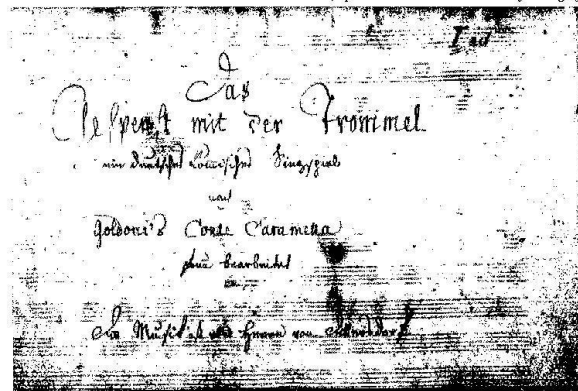 Das
Gespenst mit der Trommel
ein deutsches komisches Singspiel
nach
Goldoni's Conte Caramella
bearbeitet
Die Musik ist von Herrn von Dittersdorf